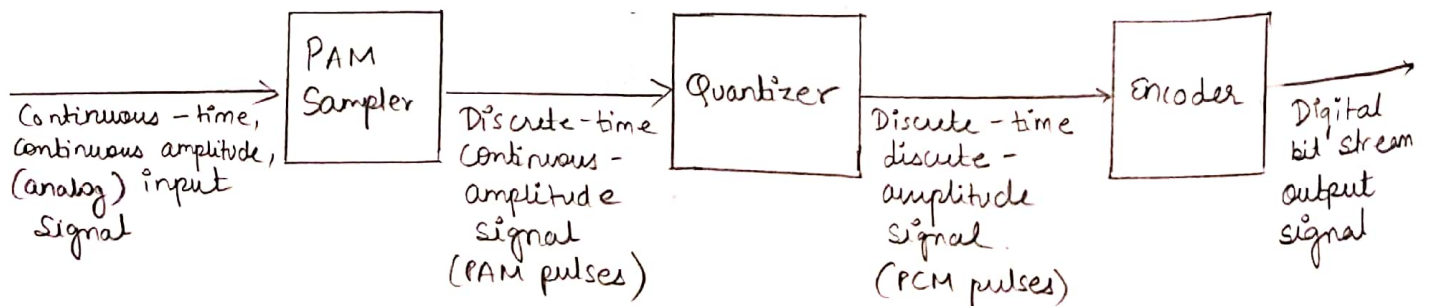 PAM
Sampler
Continuous - time,
continuous amplitude,
(analog) input
signal
Discrete-time
continuous -
amplitude
signal
(PAM pulses)
Quantizer
Discrete - time
discrete -
amplitude
signal.
(PCM pulses)
Encoder
Digital
bit stream
output
signal